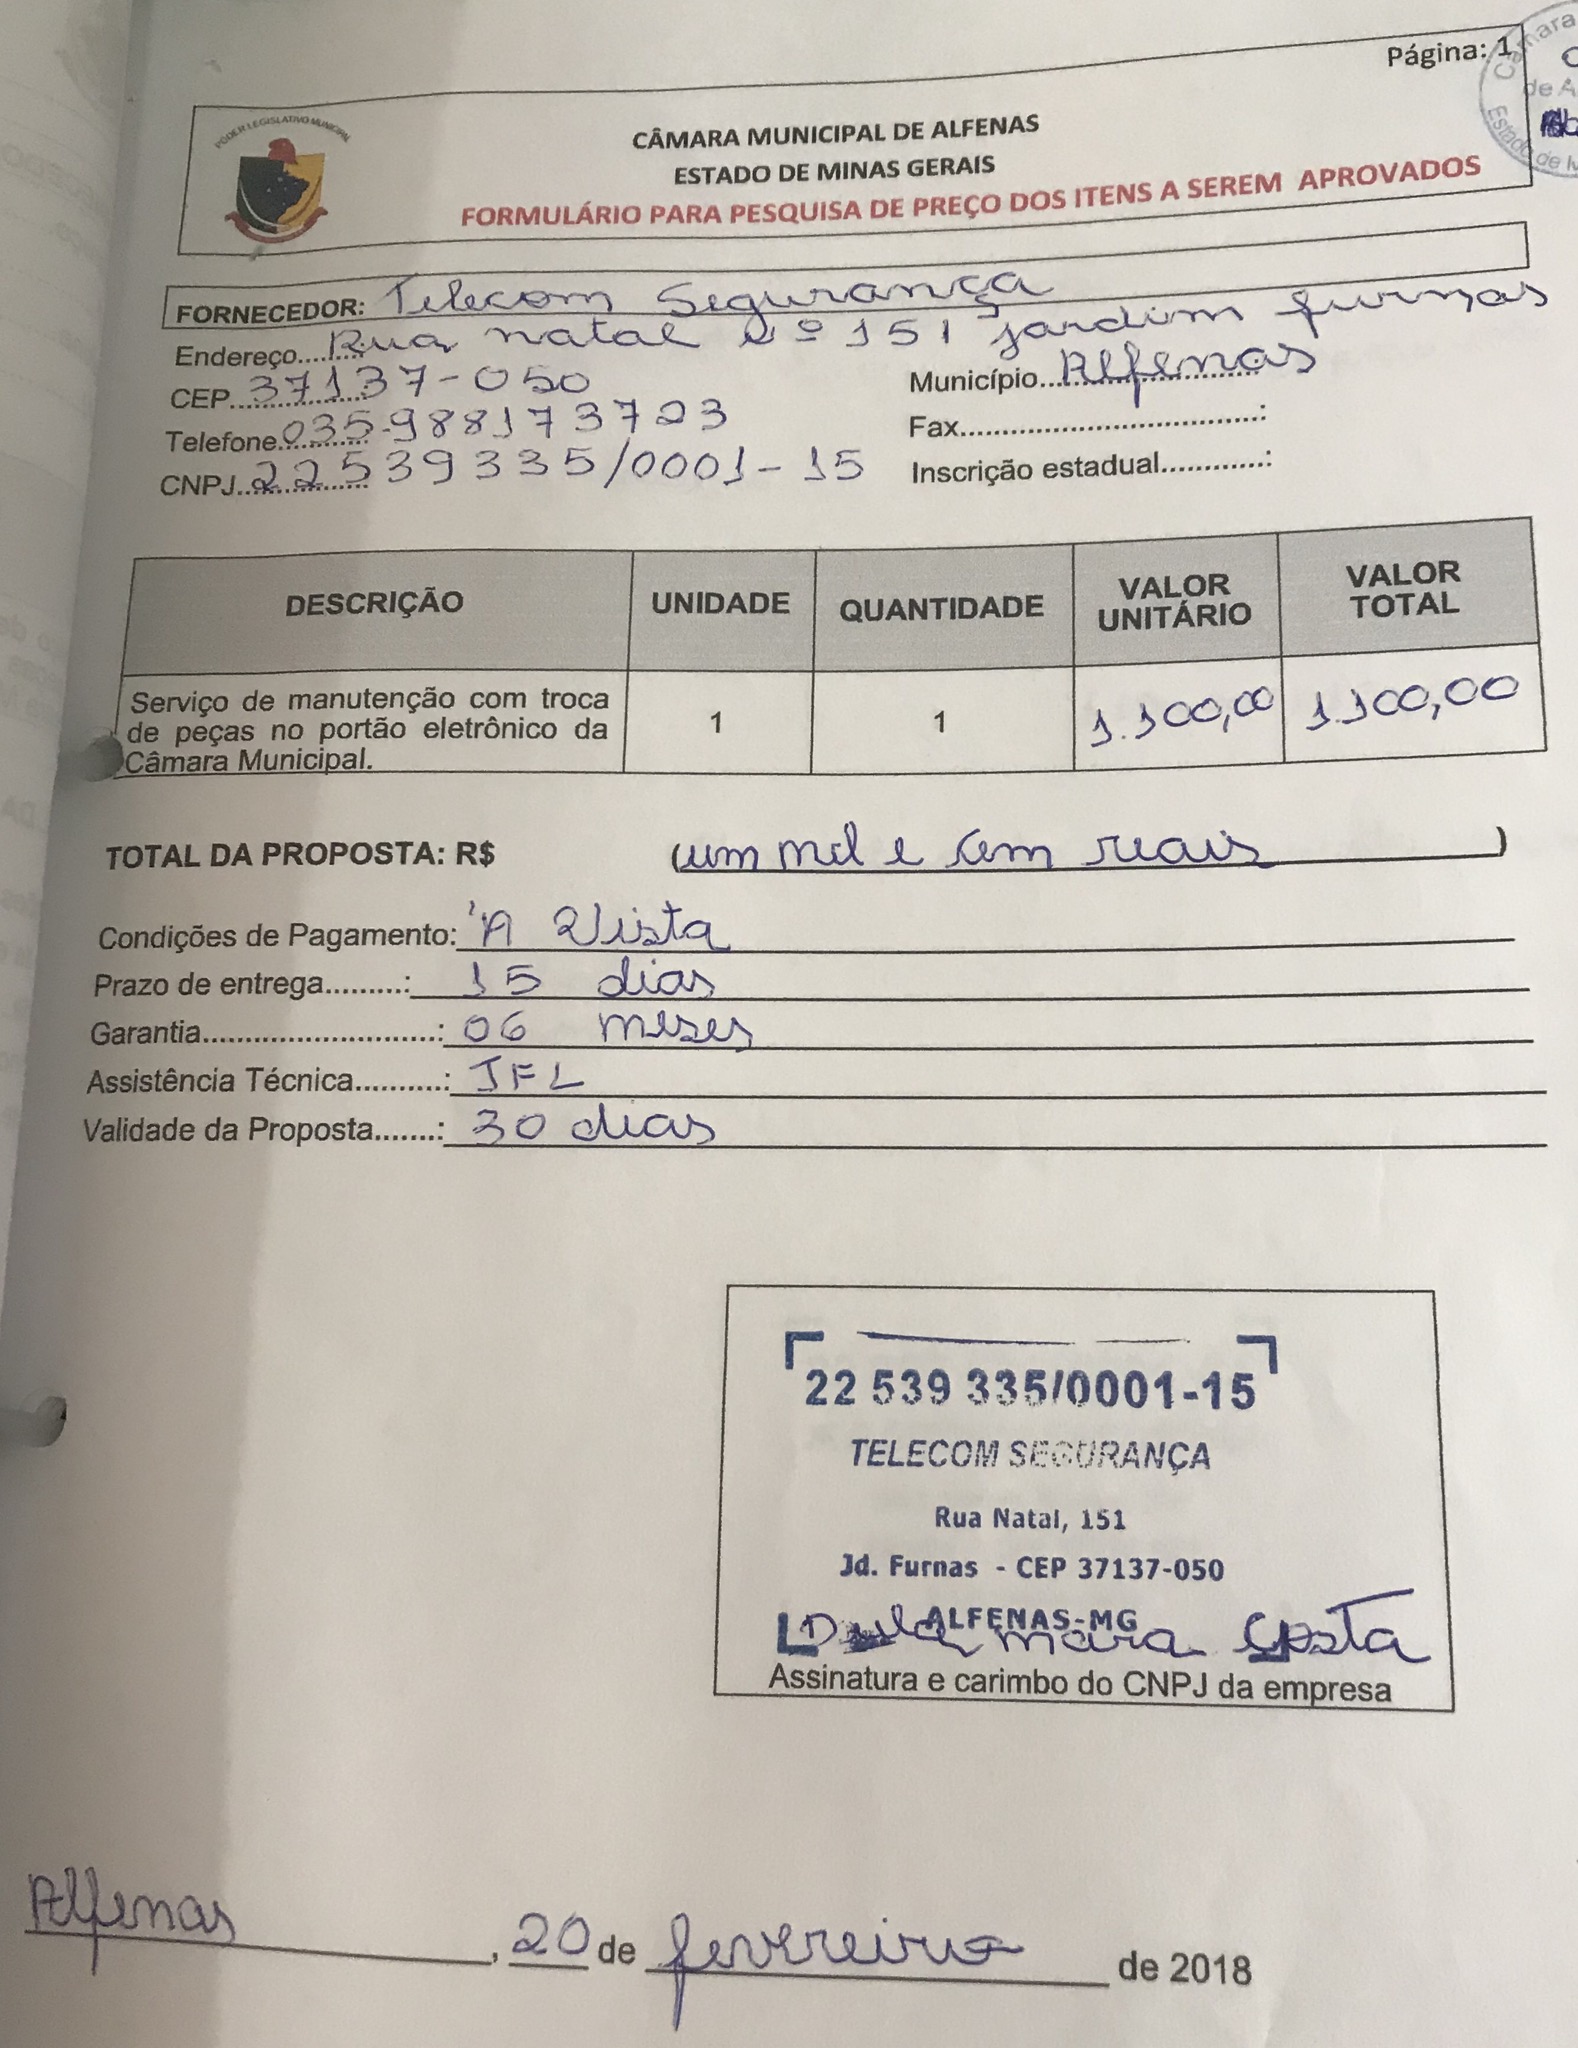 Página: 1
Câmara
de A
Estado de M
PODER LEGISLATIVO MUNICIPAL
CÂMARA MUNICIPAL DE ALFENAS
ESTADO DE MINAS GERAIS
FORMULÁRIO PARA PESQUISA DE PREÇO DOS ITENS A SEREM APROVADOS
FORNECEDOR: Telecom Segurança
Endereço.......... Rua natal nº 151 jardim furnas
CEP.................. 37137-050 Município... Alfenas
Telefone........... 035-988173723 Fax.....................................:
CNPJ................ 22539335/0001-15 Inscrição estadual.............:
DESCRIÇÃO UNIDADE QUANTIDADE VALOR UNITÁRIO VALOR TOTAL
Serviço de manutenção com troca
de peças no portão eletrônico da 1 1 1.100,00 1.100,00
Câmara Municipal.
TOTAL DA PROPOSTA: R$ (um mil e cem reais)
Condições de Pagamento: 'A Vista
Prazo de entrega.........: 15 dias
Garantia...........................: 06 meses
Assistência Técnica..........: JFL
Validade da Proposta.......: 30 dias
22 539 335/0001-15
TELECOM SEGURANÇA
Rua Natal, 151
Jd. Furnas - CEP 37137-050
ALFENAS-MG
mara Costa
Assinatura e carimbo do CNPJ da empresa
Alfenas, 20 de fevereiro de 2018